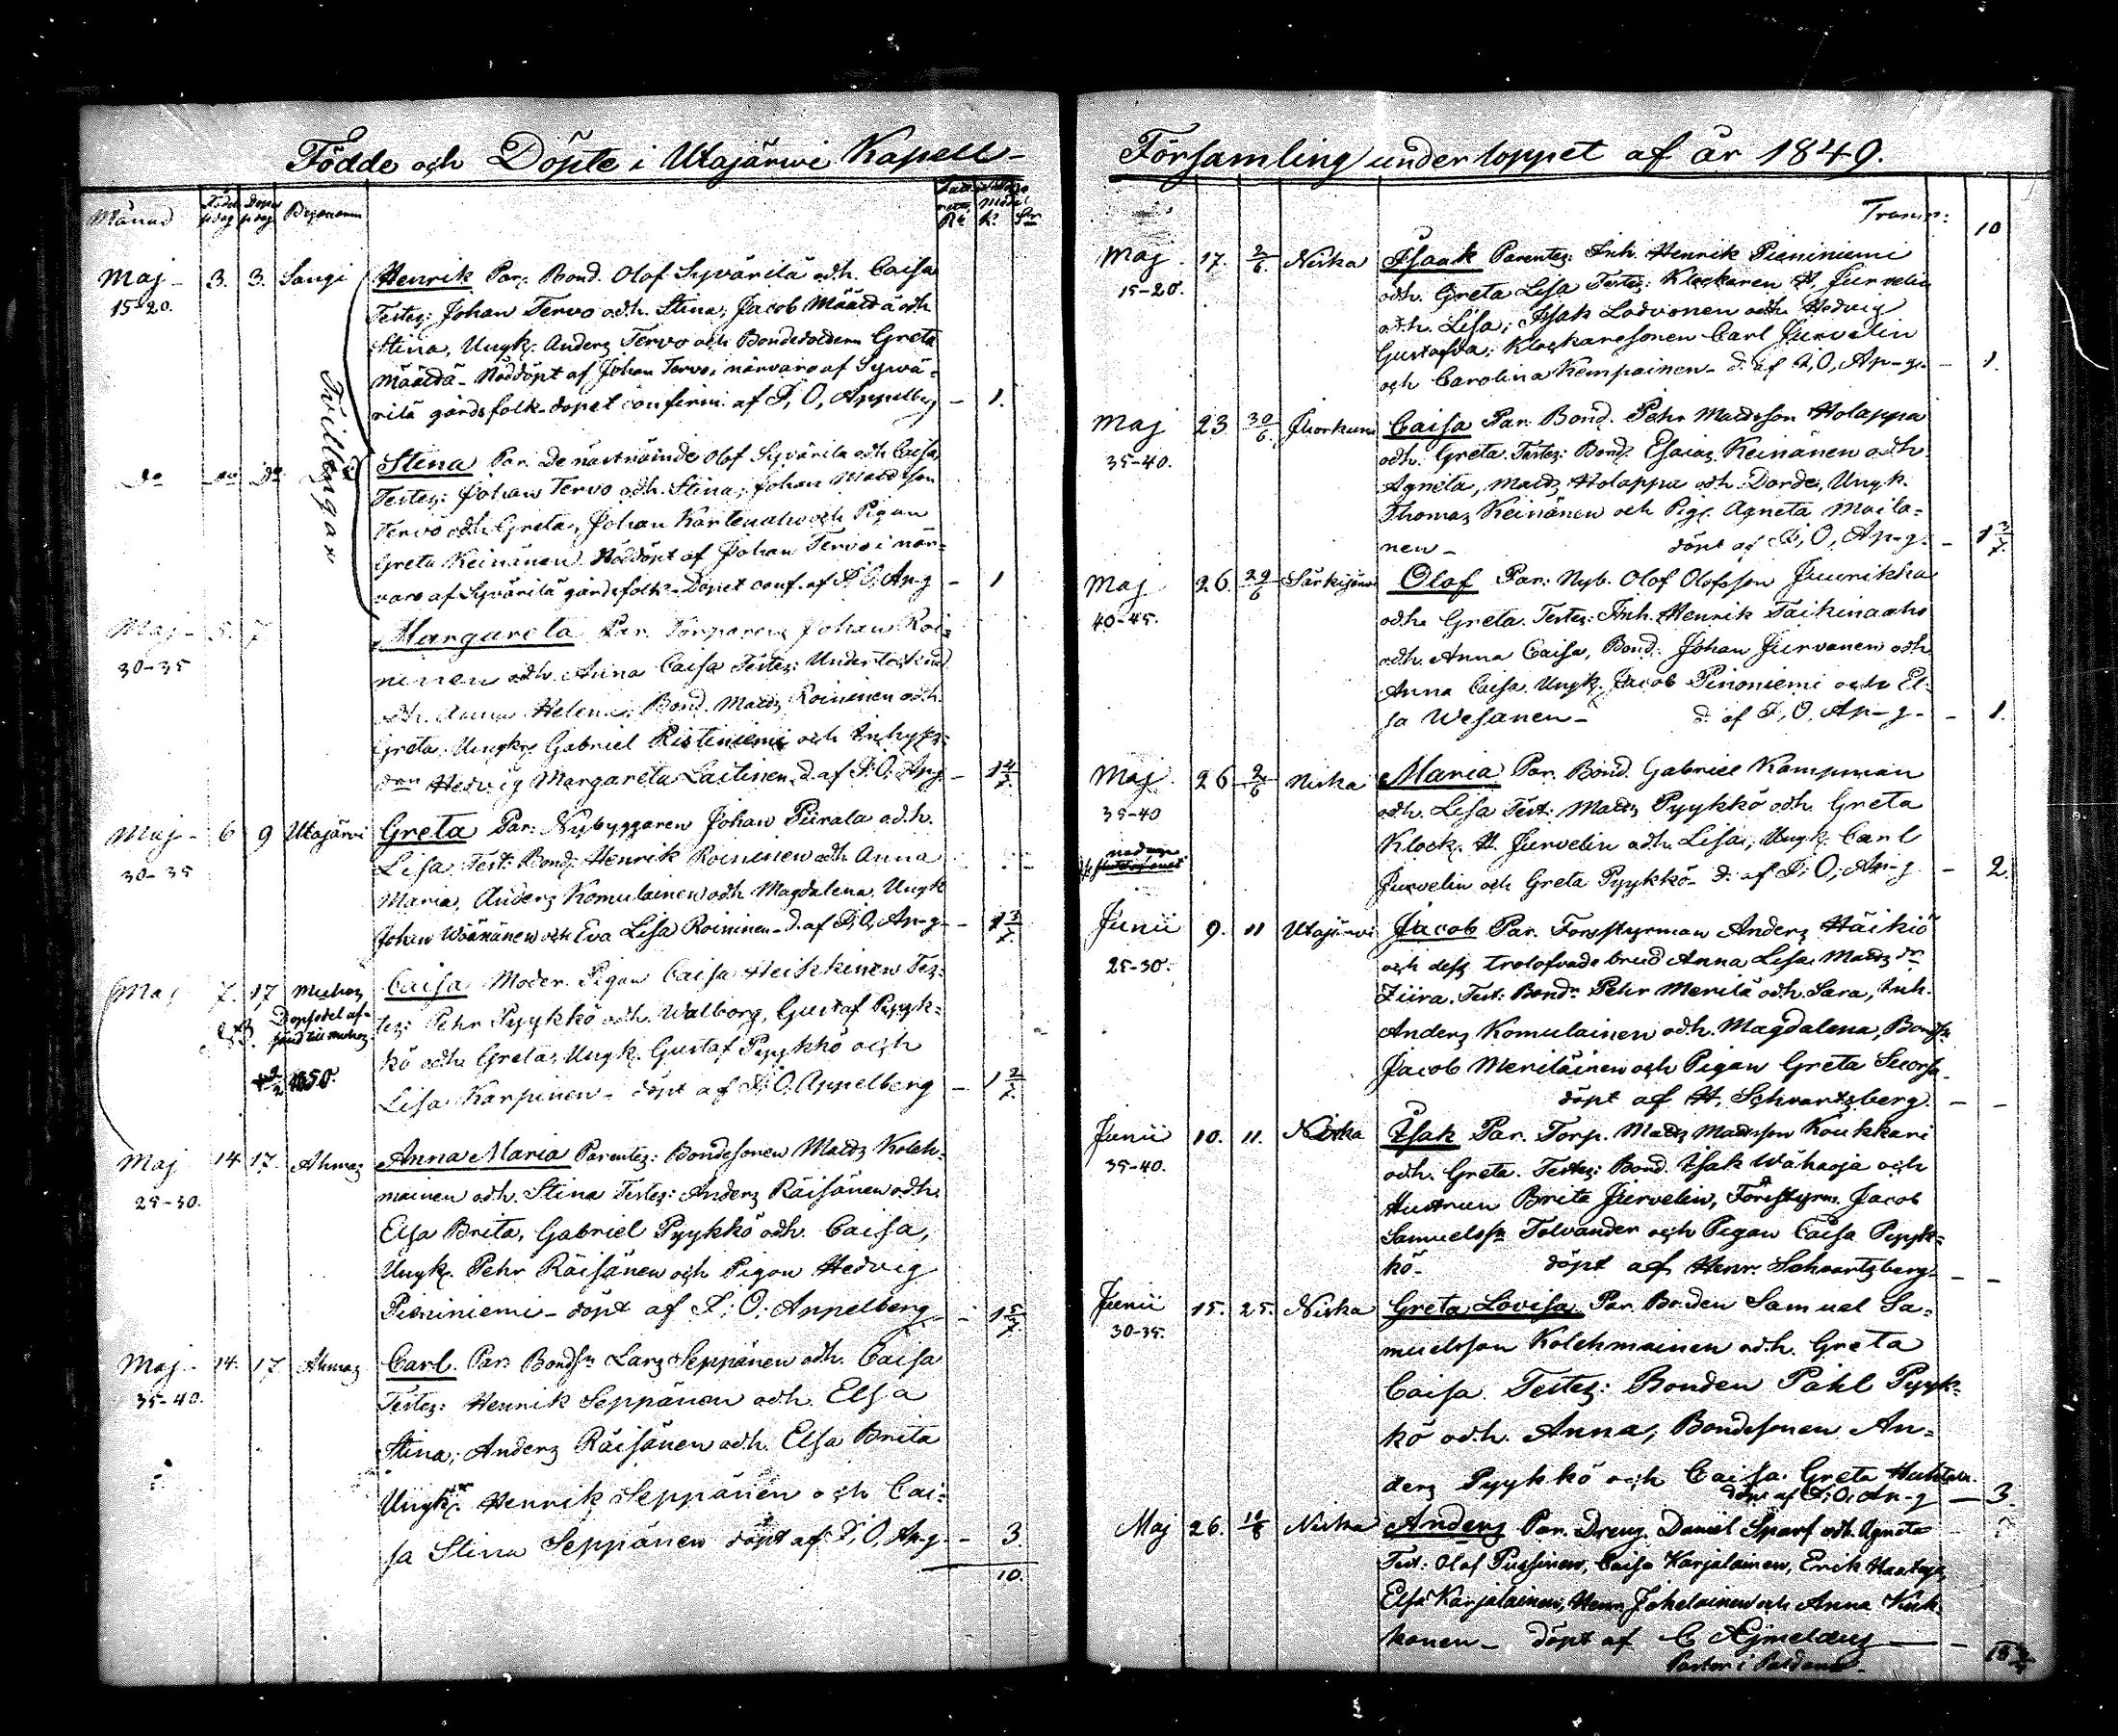 Födde och Döpte i Utajärwi Kapell-
Månad
Maj - 3. 3. Sangi Henrik Par: Bond. Olof Syvärilä o.d.h. Caisa
15-20. Testes: Johan Tervo o.d.h. Stina; Jacob Määttä o.d.h.
Stina, Ungk: Anders Tervo och Bondedottern Greta
Määttä - Nöddöpt af Johan Tervo i närvaro af Sywä-
rilä gårdsfolk - dopet confirm. af F, O, Appelberg - 1.
Tvillingar
Do Do Do Stina Par. De nästnämnde Olof Syvärilä o.d.h. Caisa,
Testes: Johan Tervo o.d.h. Stina; Johan Mattsson
Tervo o.d.h. Greta, Johan Kärtenaho och Pigan
Greta Keinänen. Nöddöpt af Johan Tervo i när-
varo af Syvärilä gårdsfolk - Dopet conf. af F, O, Ap-g - 1
Maj - 5. 7 Margareta Par. Torparen Johan Roi-
30-35 ninen o.d.h. Anna Caisa Testes:
o.d.h. Anna Helena; Bond. Matts Roininen o.d.h.
Greta. Ungk: Gabriel Ristiniemi och Inhys-
Hedvig Margareta Laitinen. d. af F, O, Ap-g - 1 4/7
Maj - 6 9 Utajärvi Greta Par: Nybyggaren Johan Piirala o.d.h.
30-35 Lisa. Test: Bond: Henrik Roininen o.d.h. Anna
Maria, Anders Komulainen o.d.h. Magdalena. Ungk
Johan Wäänänen och Eva Lisa Roininen - d. af F, O, Ap-g - 1 3/7
Maj 7. 17 Muhos Caisa Moder. Pigan Caisa Heikkinen Tes-
tes: Pehr Pyykkö o.d.h. Walborg, Gustaf Pyyk-
kö o.d.h. Greta, Ungk. Gustaf Pyykkö och
1850. Lisa Karpinen - döpt af F, O, Appelberg - 1 2/7
Maj 14 17. Ahmas Anna Maria Parentes: Bondesonen Matts Koleh-
25-30. mainen o.d.h. Stina Testes: Anders Räisänen o.d.h.
Elsa Brita, Gabriel Pyykkö o.d.h. Caisa,
Ungk. Pehr Räisänen och Pigan Hedvig
Pieniniemi - döpt af F: O: Appelberg - 1 5/7
Maj - 14. 17 Ahmas Carl. Par: Lars Seppänen o.d.h. Caisa
35-40. Testes: Henrik Seppänen o.d.h. Elsa
Stina; Anders Räisänen o.d.h. Elsa Brita
Ungk: Henrik Seppänen och Cai-
sa Stina Seppänen döpt af F, O, Ap-g - 3.
10.
Församling under loppet af år 1849.
Transp: 10
Maj 17. 2/6. Niska Isaak Parentes: Inh. Henrik Pieniniemi
15-20. o.d.h. Greta Lisa Testes: Klockaren H, Jurvelin
o.d.h. Lisa; Isak Lodvonen o.d.h. Hedvig
Gustafva; Klockaresonen Carl Jurvelin
och Carolina Kempainen - d. af F, O, Ap-g. - 1.
Maj 23 30/6. Juorkuna Caisa Par. Bond. Pehr Mattsson Holappa
35-40. o.d.h. Greta. Testes: Bond: Esaias Keinänen o.d.h.
Agneta, Matts Holappa o.d.h. Dordei, Ungk.
Thomas Keinänen och Pig: Agneta Maila-
nen - döpt af F, O, Ap-g. - 1 3/7.
Maj 26. 29/6 Särkijärvi Olof Par: Nyb. Olof Olofsson Juurikka
40-45. o.d.h. Greta. Testes: Inh. Henrik Taikinaaho
o.d.h. Anna Caisa, Bond. Johan Jurvanen o.d.h.
Anna Caisa. Ungk. Jacob Pinoniemi och El-
sa Wesanen - d. af F, O, Ap-g - - 1.
Maj 26 2/6 Niska Maria Par. Bond. Gabriel Kampman
35-40 o.d.h. Lisa Test: Matts Pyykkö o.d.h. Greta
Klock. H. Jurvelin o.d.h. Lisa; Ungk. Carl
Jurvelin och Greta Pyykkö - d: af F: O; Ap-g. - 2.
Junii 9. 11 Utajärvi Jacob Par. Forsstyrman Anders Häikiö
25-30. och dess trolofvade brud Anna Lisa Matts dr
Ziira. Test: Bondn Pehr Merilä o.d.h. Sara, Inh.
Anders Komulainen o.d.h. Magdalena,
Jacob Meriläinen och Pigan Greta Suorsa
döpt af H, Schvartzberg. - -
Junii 10. 11. Niska Isak Par. Torp. Matts Mattsson Koukkari
35-40. o.d.h. Greta. Testes: Bond. Isak Wähaoja och
Hustrun Brita Jurvelin, Forsstyrm. Jacob
Samuelssn Tolvander och Pigan Caisa Pyyk-
kö - döpt af Henr. Schvartzberg - -
Junii 15. 25. Niska Greta Lovisa Par Bonden Samuel Sa-
30-35. muelsson Kolehmainen o.d.h. Greta
Caisa. Testes: Bonden Påhl Pyyk-
kö o.d.h. Anna; Bondesonen An-
ders Pyykkö och Caisa Greta Huhtala.
döpt af F: O: Ap-g - 3.
Maj 26. Niska Anders Par. Dreng. Daniel Sparf o.d.h. Agneta
Test: Olof Pussinen, Caisa Karjalainen, Erik Haataja,
Elsa Karjalainen, Henr. Jokelainen och Anna Kuk-
konen - döpt af C Ajmelæus
Pastor i Paldamo -